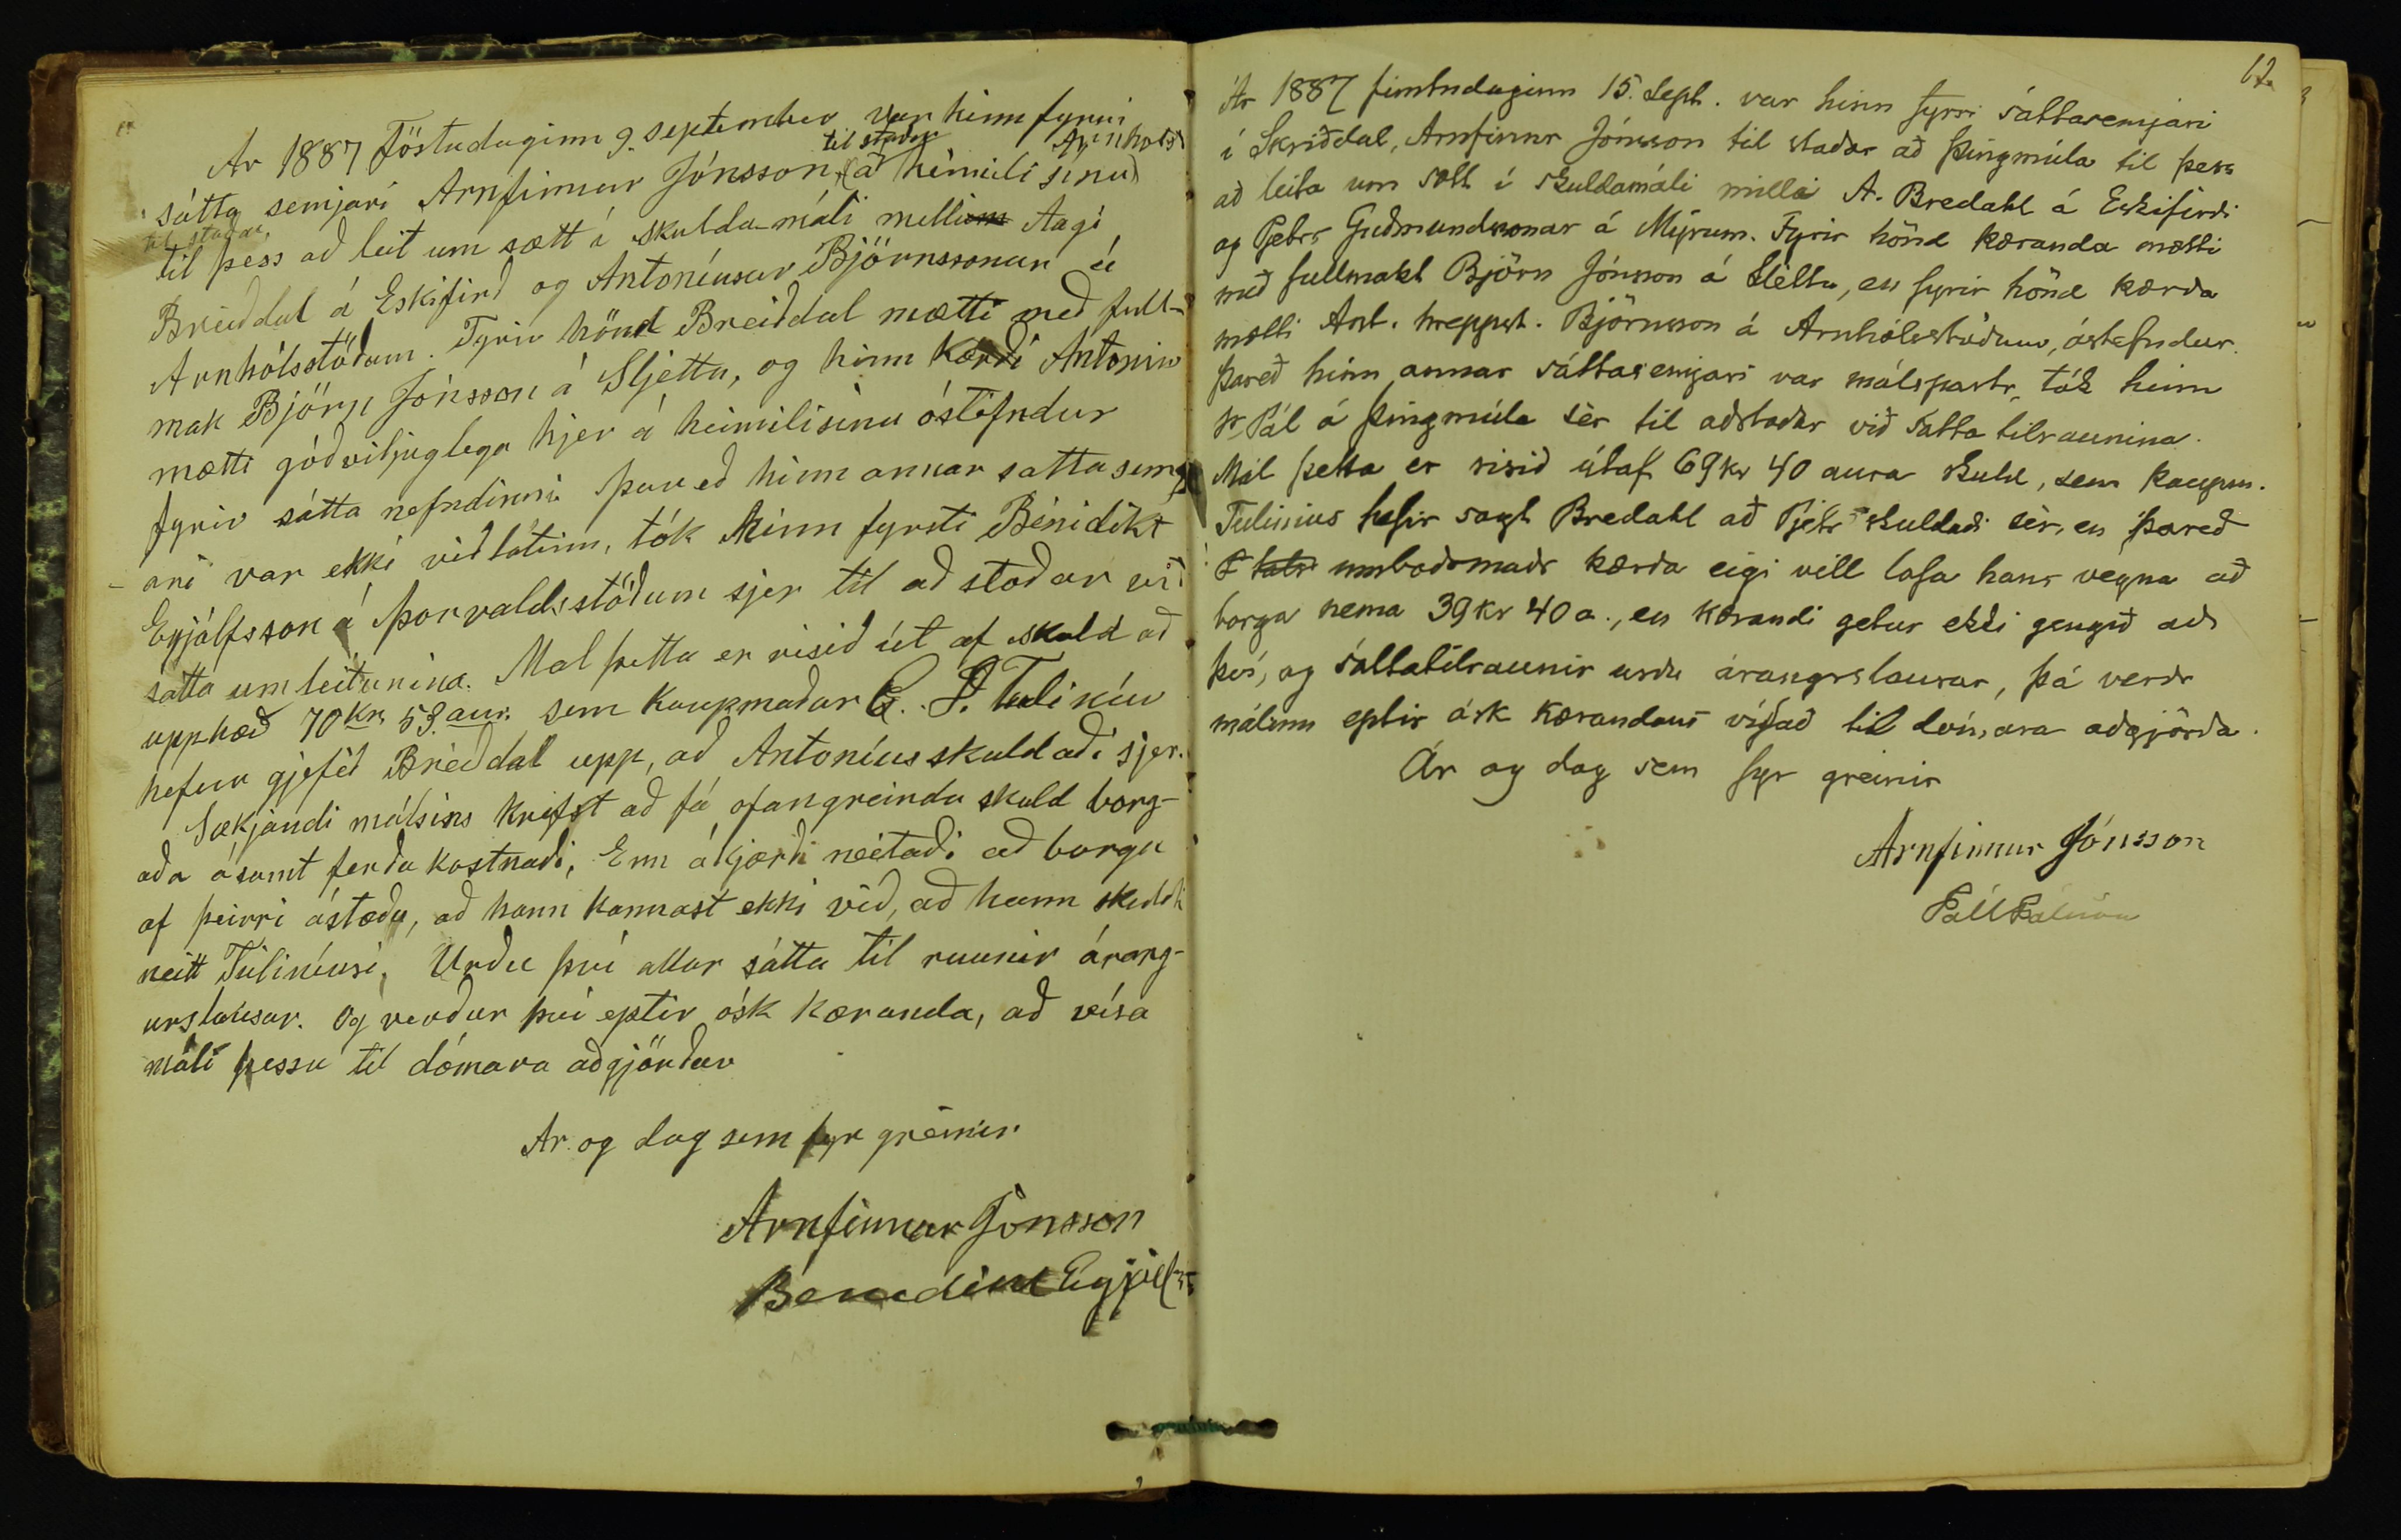 Ar 1887 Föstudaginn 9. september var hinn fyrri
sátta semjari Arnfinnur Jónsson, til staðar (á heimili sínu) Arnhólsst
til staðar,
til þess að leit um sætt í skulda máli millium Aagi
Breiddal á Eskifird og Antoníusar Björnssonar á
Arnhólsstöðum. Fyrir hönd Breiddal mætti með full-
mak Björn Jónsson á Sljettu, og hinn kærdi Antoniu
mætti góðviljuglega hjer á heimili sínu óstefndur
fyrir sátta nefndinni. Þar eð hinn annar satta semj
ari var ekki viðlátinn, tók hinn fyrsti Bénidikt
Eyjálfsson á Þorvaldsstöðum sjer til að stoðar við
sátta umleitunina. Mal þetta er risið út af skuld að
upphæð 70 kr, 53. aur. sem kaupmaðar C. D. Tuliníu
hefur gjefið Breiddal upp, að Antoníus skuldaði sjer.
Sækjandi málsins krefst að fá ofangreinda skuld borg-
aða ásamt ferða kostnaði, Enn ákjærði neitaði að borga
af þeirri ástæðu, að hann kannast ekki við, að hann skuldi
neitt Túliníusi, Urðu því allar sátta til raunir árang-
urslausar. Og verður því eptir ósk kæranda, að vísa
máli þessu til dómara aðgjörðar
Ar og dag sem fyr greinir
Arnfinnur Jónsson
Benedikt Eyjólfss
12
Ár 1887 fimtudaginn 15. Sept. var hinn fyrri sáttasemjari
í Skriðdal, Arnfinnr Jónsson til staðar að Þingmúla til þess
að leita um sátt í skuldamáli milli A. Bredahl á Eskifirði
og Petrs Guðmundssonar á Mýrum. Fyrir hönd kæranda mætti
með fullmakt Björn Jónsson á Sléttu, en fyrir hönd kærða
mætti Ant. hreppst. Björnsson á Arnhólsstöðum, óstefndur.
Þareð hinn annar sáttasemjari var málspartr, tók hinn
sr Pál á Þingmúla sér til aðstoðar við sátta tilraunina.
Mál þetta er risið útaf 69 kr 40 aura skuld, sem kaupm.
Tulinius hefir sagt Bredahl að Pjetr skuldaði sér, en þareð
umboðsmaðr kærða eigi vill lofa hans vegna að
borga nema 39 kr 40 a., en kærandi getur ekki gengið að
því, og sáttatilraunir urðu árangrslausar, þá verðr
málinu eptir ósk kærandans vísað til dómara aðgjörða.
Ár og dag sem fyr greinir
Arnfinnur Jónsson
Páll Pálsson